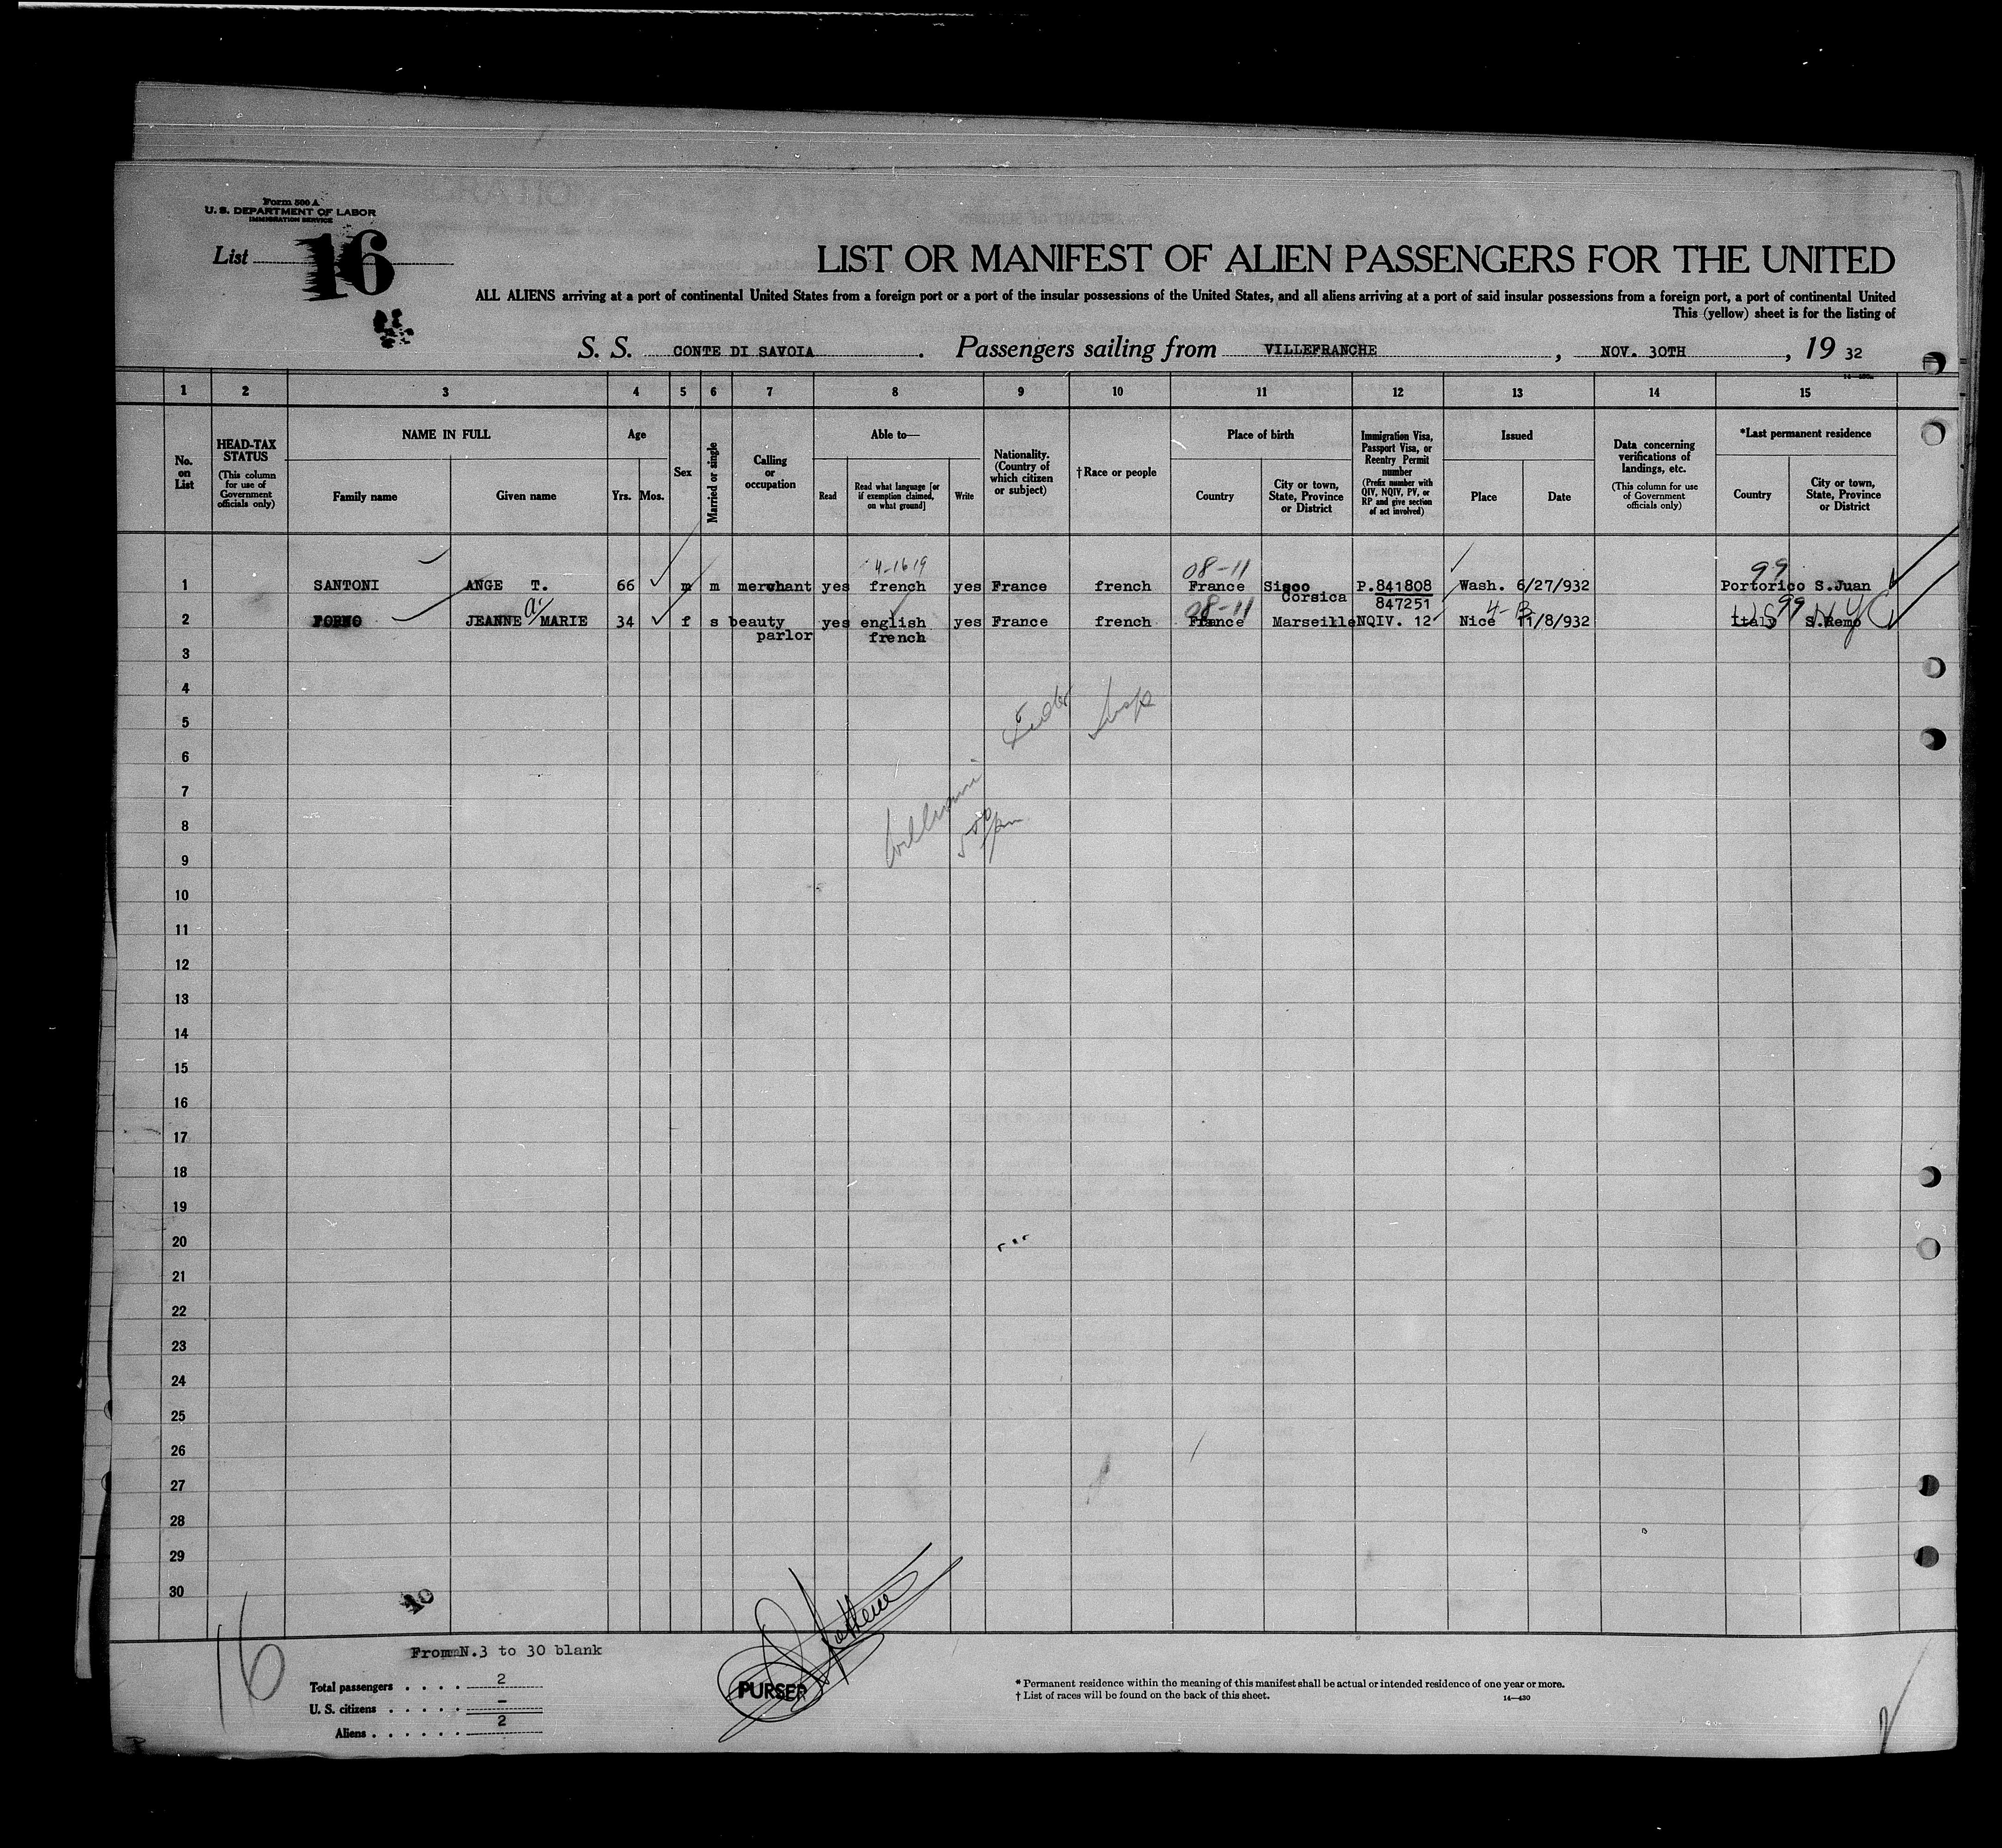 Form 500 A
U. S. DEPARTMENT OF LABOR
IMMIGRATION SERVICE
List 16
LIST OR MANIFEST OF ALIEN PASSENGERS FOR THE UNITED
ALL ALIENS arriving at a port of continental United States from a foreign port or a port of the insular possessions of the United States, and all aliens arriving at a port of said insular possessions from a foreign port, a port of continental United
This (yellow) sheet is for the listing of
S. S. CONTE DI SAVOIA . Passengers sailing from VILLEFRANCHE , NOV. 30TH , 19 32
1 2 3 4 5 6 7 8 9 10 11 12 13 14 15
No. on List
HEAD-TAX STATUS (This column for use of Government officials only)
NAME IN FULL
Family name Given name
Age
Yrs. Mos.
Sex
Married or single
Calling or occupation
Able to—
Read Read what language [or if exemption claimed, on what ground] Write
Nationality. (Country of which citizen or subject)
†Race or people
Place of birth
Country City or town, State, Province or District
Immigration Visa, Passport Visa, or Reentry Permit number (Prefix number with QIV, NQIV, PV, or RP and give section of act involved)
Issued
Place Date
Data concerning verifications of landings, etc. (This column for use of Government officials only)
*Last permanent residence
Country City or town, State, Province or District
4-1619 08-11 99
1 SANTONI ANGE T. 66 m m merchant yes french yes France french France Sisco P.841808 Wash. 6/27/932 Portorico S.Juan
Corsica 847251
a. 08-11 4-B US 99 NYC
2 JEANNE MARIE 34 f s beauty yes english yes France french France Marseille NQIV. 12 Nice 11/8/932 Italy S.Remo
parlor french
3
4
5
6
7
8
9
10
11
12
13
14
15
16
17
18
19
20
21
22
23
24
25
26
27
28
29
30
16
From N.3 to 30 blank
Total passengers . . . . 2
U. S. citizens . . . . . –
Aliens . . . . . . 2
PURSER
* Permanent residence within the meaning of this manifest shall be actual or intended residence of one year or more.
† List of races will be found on the back of this sheet.
14—430